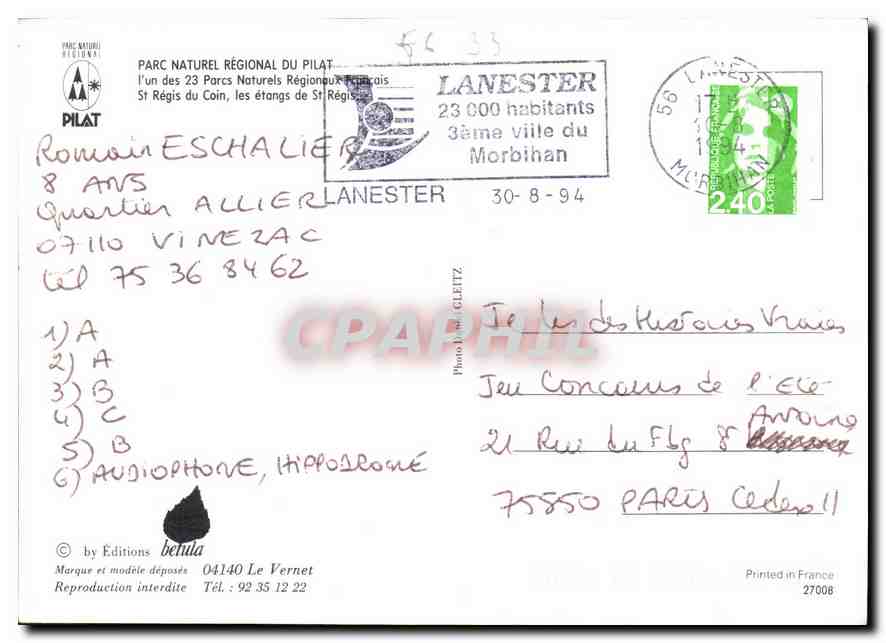 56 33
PARC NATUREL
RÉGIONAL
PILAT
PARC NATUREL RÉGIONAL DU PILAT
l'un des 23 Parcs Naturels Régionaux Français
St Régis du Coin, les étangs de St Régis
LANESTER
23 000 habitants
3ème ville du
Morbihan
LANESTER 30-8-94
56 LANESTER
MORBIHAN
RÉPUBLIQUE FRANÇAISE
2,40
LA POSTE
Romain ESCHALIER
8 ANS
Quartier ALLIER
07110 VINEZAC
tél 75 36 84 62
1) A
2) A
3) B
4) C
5) B
6) AUDIOPHONE, HIPPODROME
CPAPHIL
Je lis des Histoires Vraies
Jeu Concours de l'Eté
21 Rue du Fbg St Antoine
75550 PARIS Cedex 11
© by Éditions betula
Marque et modèle déposés 04140 Le Vernet
Reproduction interdite Tél. : 92 35 12 22
Printed in France
27008